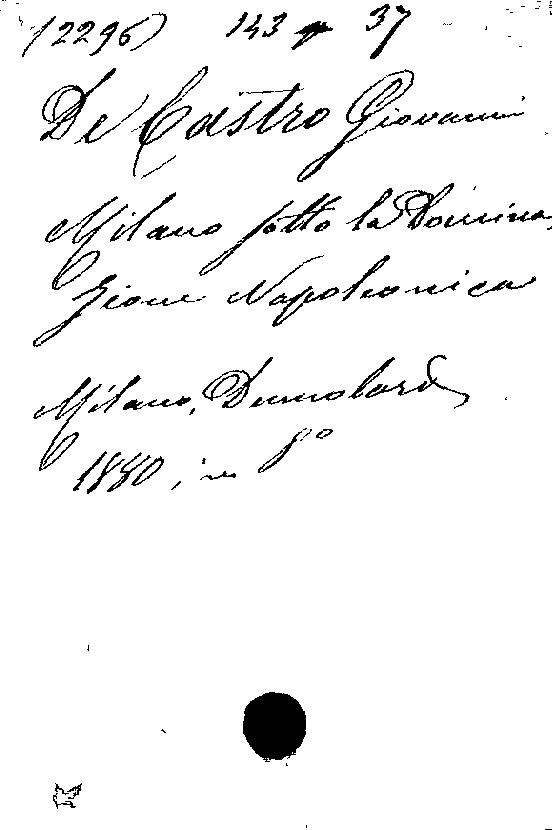 (2296) 143 37
De Castro Giovanni
Milano sotto la Domina
zione Napoleonica
Milano, Dumolard
1880, in 8°